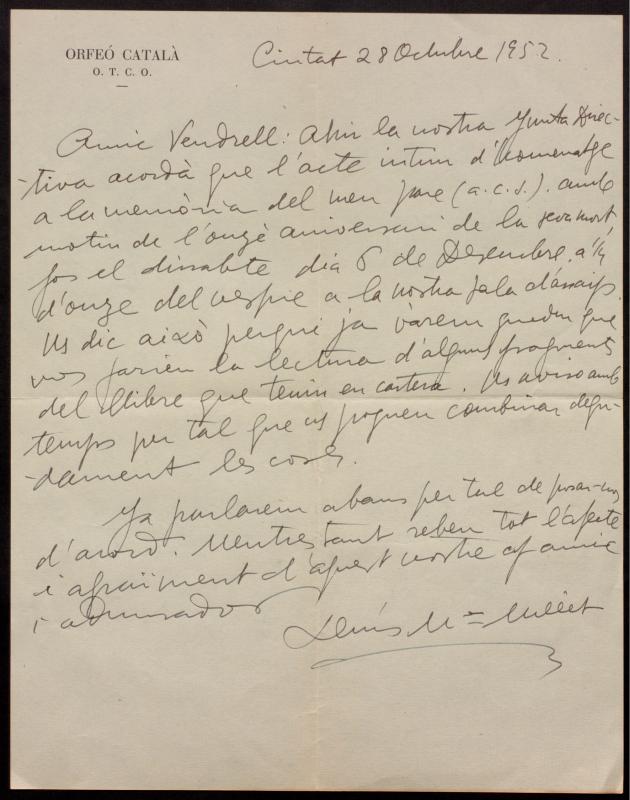 ORFEÓ CATALÀ
O. T. C. O.
Ciutat 28 Octubre 1952.
Amic Vendrell: Ahir la nostra Junta Direc-
-tiva acordà que l'acte íntim d'homenatge
a la memòria del meu pare (a.c.s.). amb
motiu de l'onzè aniversari de la seva mort,
fos el dissabte dia 6 de Desembre, a ¼
d'onze del vespre a la nostra Sala d'assaigs.
Us dic això perquè ja vàrem quedar que
vos farien la lectura d'alguns fragments
del llibre que tenim en cartera. Us aviso amb
temps per tal que us poguen combinar degu-
-dament les coses.
Ja parlarem abans per tal de posar-nos
d'acord. Mentrestant reben tot l'afecte
i agraïment d'aquest vostre af amic
i admirador
Lluís Mª Millet